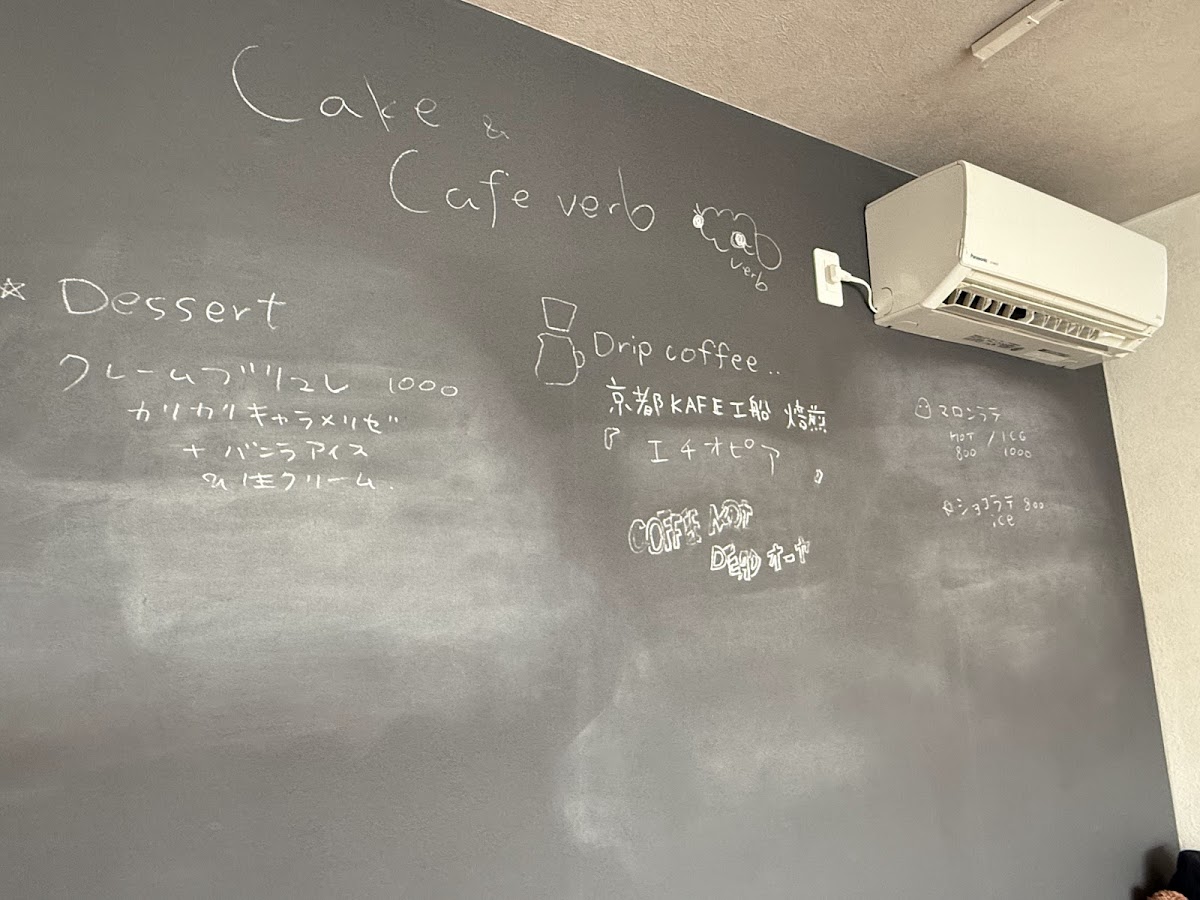 Cake &
Cafe verb
verb
☆ Dessert
クレームブリュレ 1000
カリカリキャラメリゼ
+ バニラアイス
生クリーム.
Drip coffee..
京都KAFE工船 焙煎
『エチオピア』
COFFEE NOT
DEAD オーヤ
マロンラテ
HOT / ICE
800 1000
ショコラテ 800
ice
Panasonic